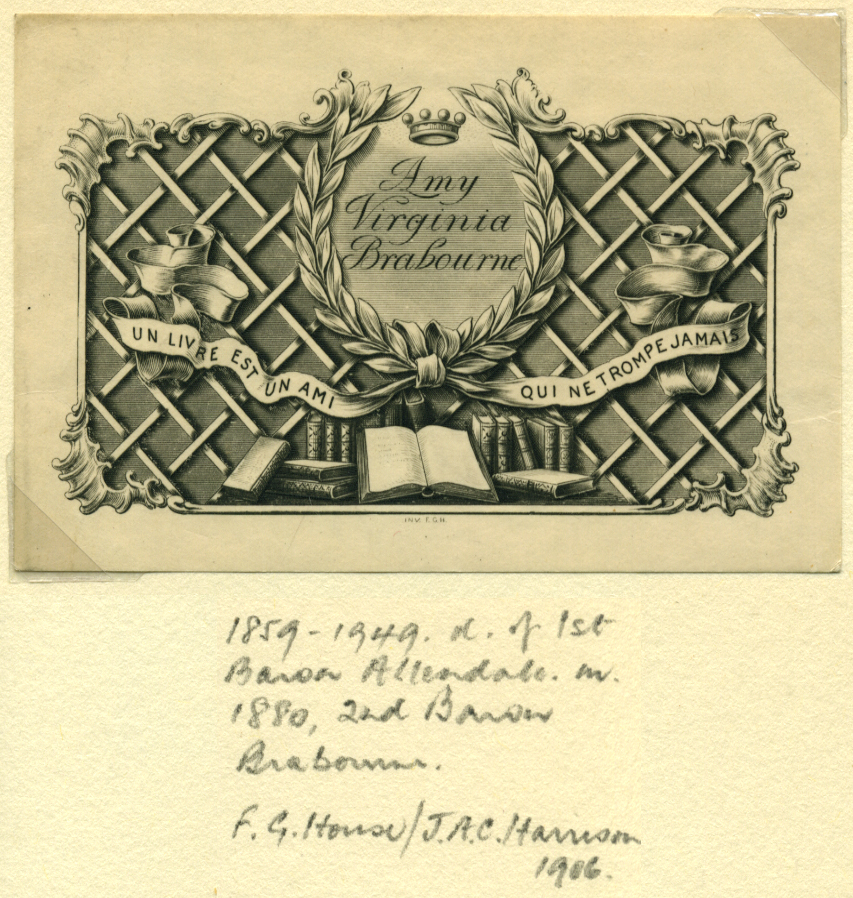 Amy
Virginia
Brabourne
UN LIVRE EST UN AMI
QUI NE TROMPE JAMAIS
INV. F.G.H.
1859-1949. d. of 1st
Baron Allendale. m.
1880, 2nd Baron
Brabourne.
F. G. House/J.A.C. Harrison
1906.